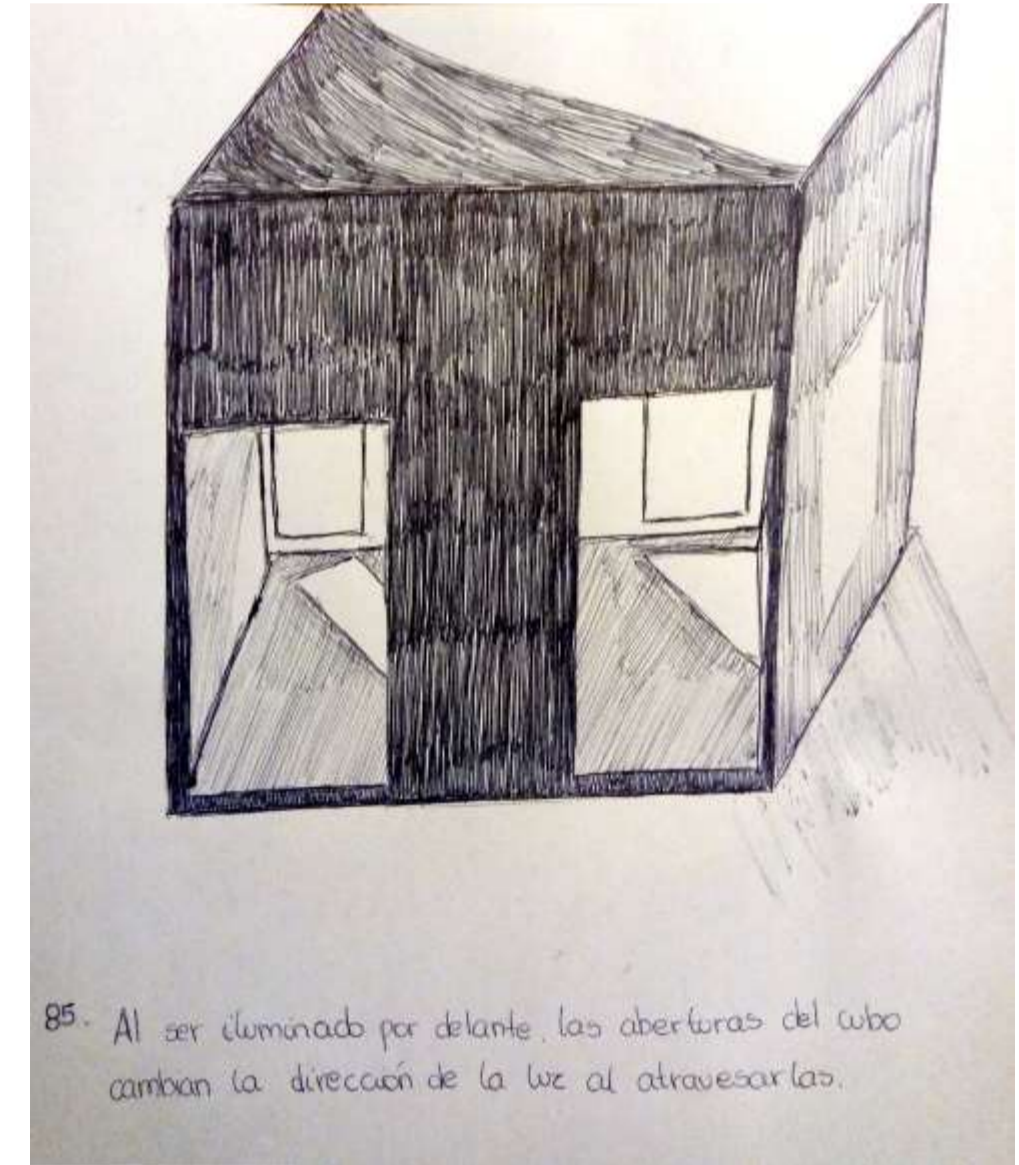 85. Al ser iluminado por delante, las aberturas del cubo
cambian la dirección de la luz al atravesarlas.